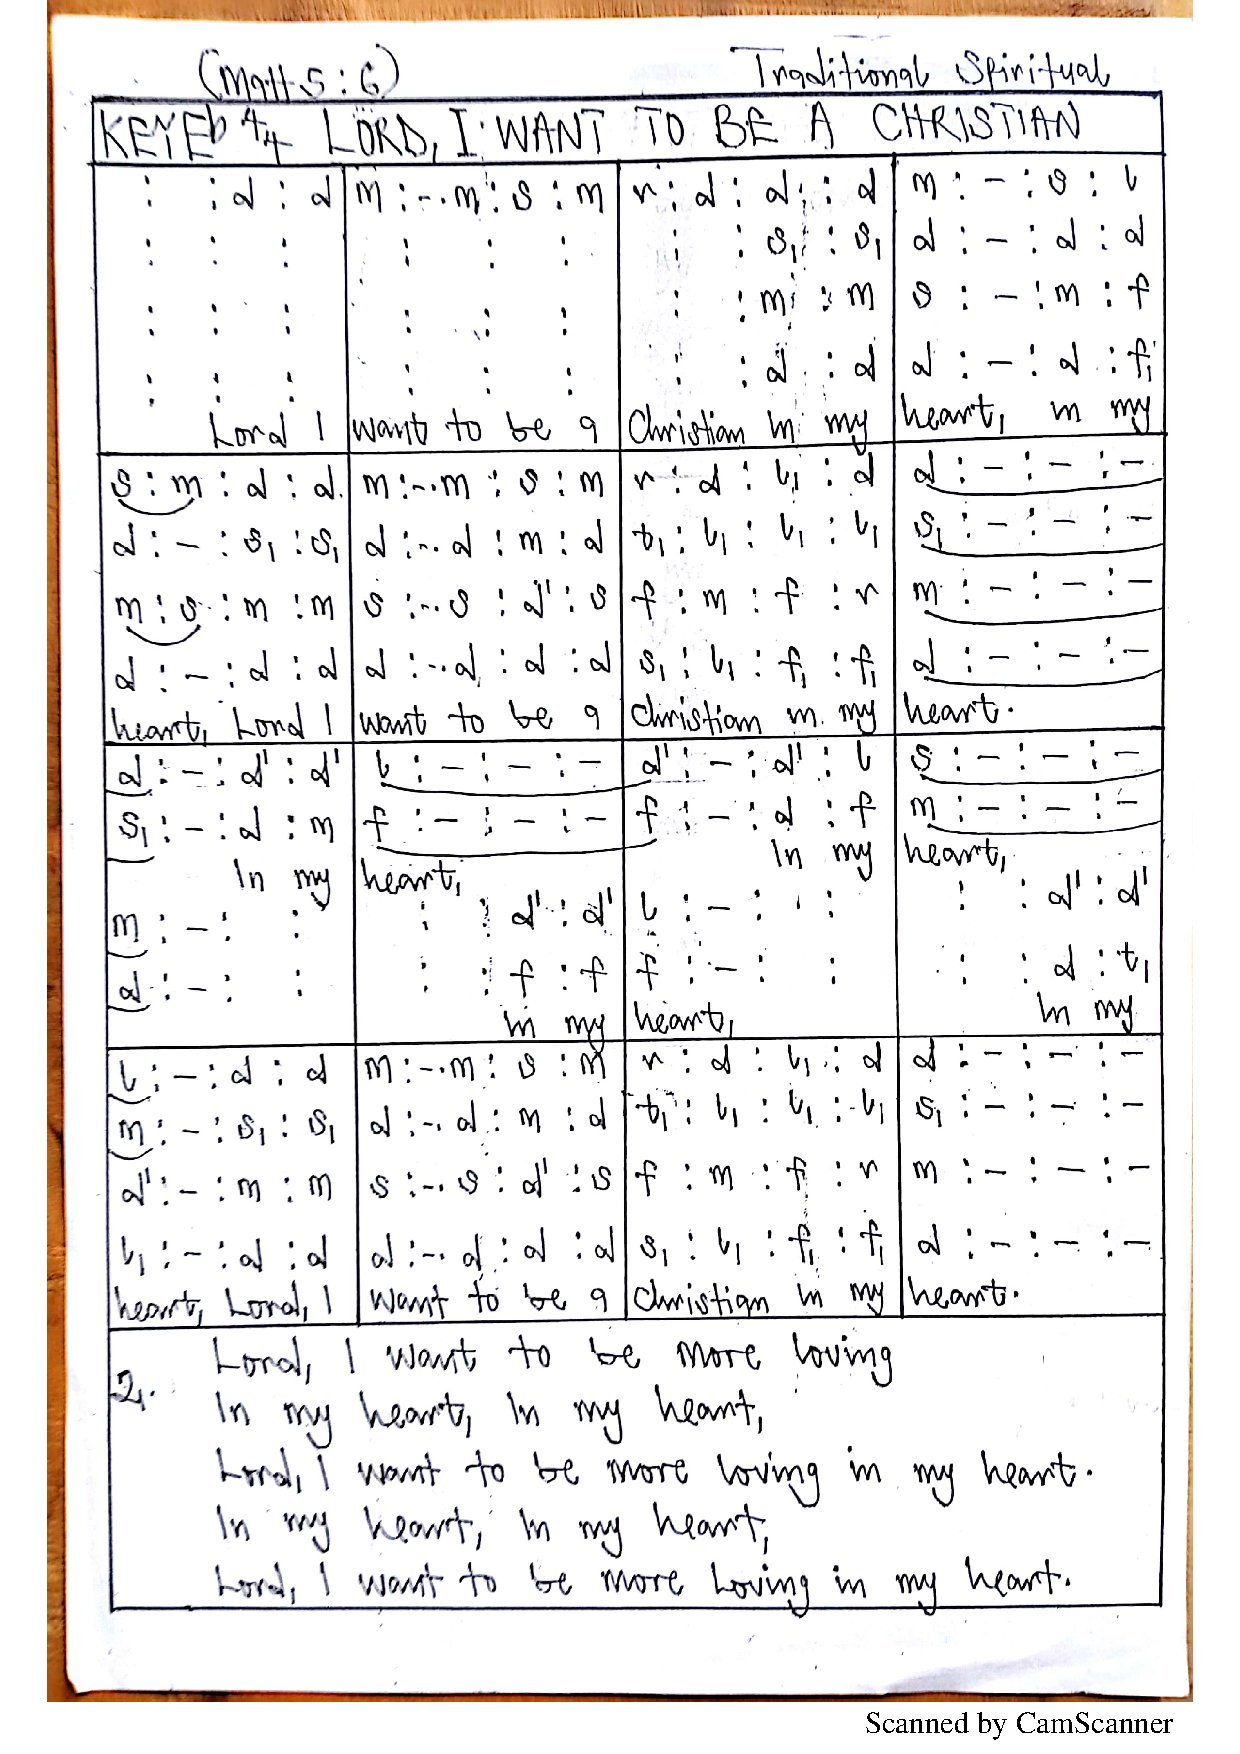 (Matt 5 : 6) Traditional Spiritual
KEY E♭ 4/4 LORD, I WANT TO BE A CHRISTIAN
: : d : d | m : -. m : s : m | r : d : d : d | m : - : s : l
: : : | : : : | : : s₁ : s₁ | d : - : d : d
: : : | : : : | : : m : m | s : - : m : f
: : : | : : : | : : d : d | d : - : d : f₁
Lord I | want to be a | Christian in my | heart, in my
s : m : d : d | m : -. m : s : m | r : d : l₁ : d | d : - : - : -
d : - : s₁ : s₁ | d : -. d : m : d | t₁ : l₁ : l₁ : l₁ | s₁ : - : - : -
m : s : m : m | s : -. s : d' : s | f : m : f : r | m : - : - : -
d : - : d : d | d : -. d : d : d | s₁ : l₁ : f₁ : f₁ | d : - : - : -
heart, Lord I | want to be a | Christian in my | heart.
d : - : d' : d' | l : - : - : - | d' : - : d' : l | s : - : - : -
s₁ : - : d : m | f : - : - : - | f : - : d : f | m : - : - : -
In my | heart, | In my | heart,
m : - : : | : : d' : d' | l : - : : | : : d' : d'
d : - : : | : : f : f | f : - : : | : : d : t₁
In my | heart, | In my
l : - : d : d | m : -. m : s : m | r : d : l₁ : d | d : - : - : -
m : - : s₁ : s₁ | d : -. d : m : d | t₁ : l₁ : l₁ : l₁ | s₁ : - : - : -
d' : - : m : m | s : -. s : d' : s | f : m : f : r | m : - : - : -
l₁ : - : d : d | d : -. d : d : d | s₁ : l₁ : f₁ : f₁ | d : - : - : -
heart, Lord, I | want to be a | Christian in my | heart.
2. Lord, I want to be more loving
In my heart, In my heart,
Lord, I want to be more loving in my heart.
In my heart, In my heart,
Lord, I want to be more Loving in my heart.
Scanned by CamScanner